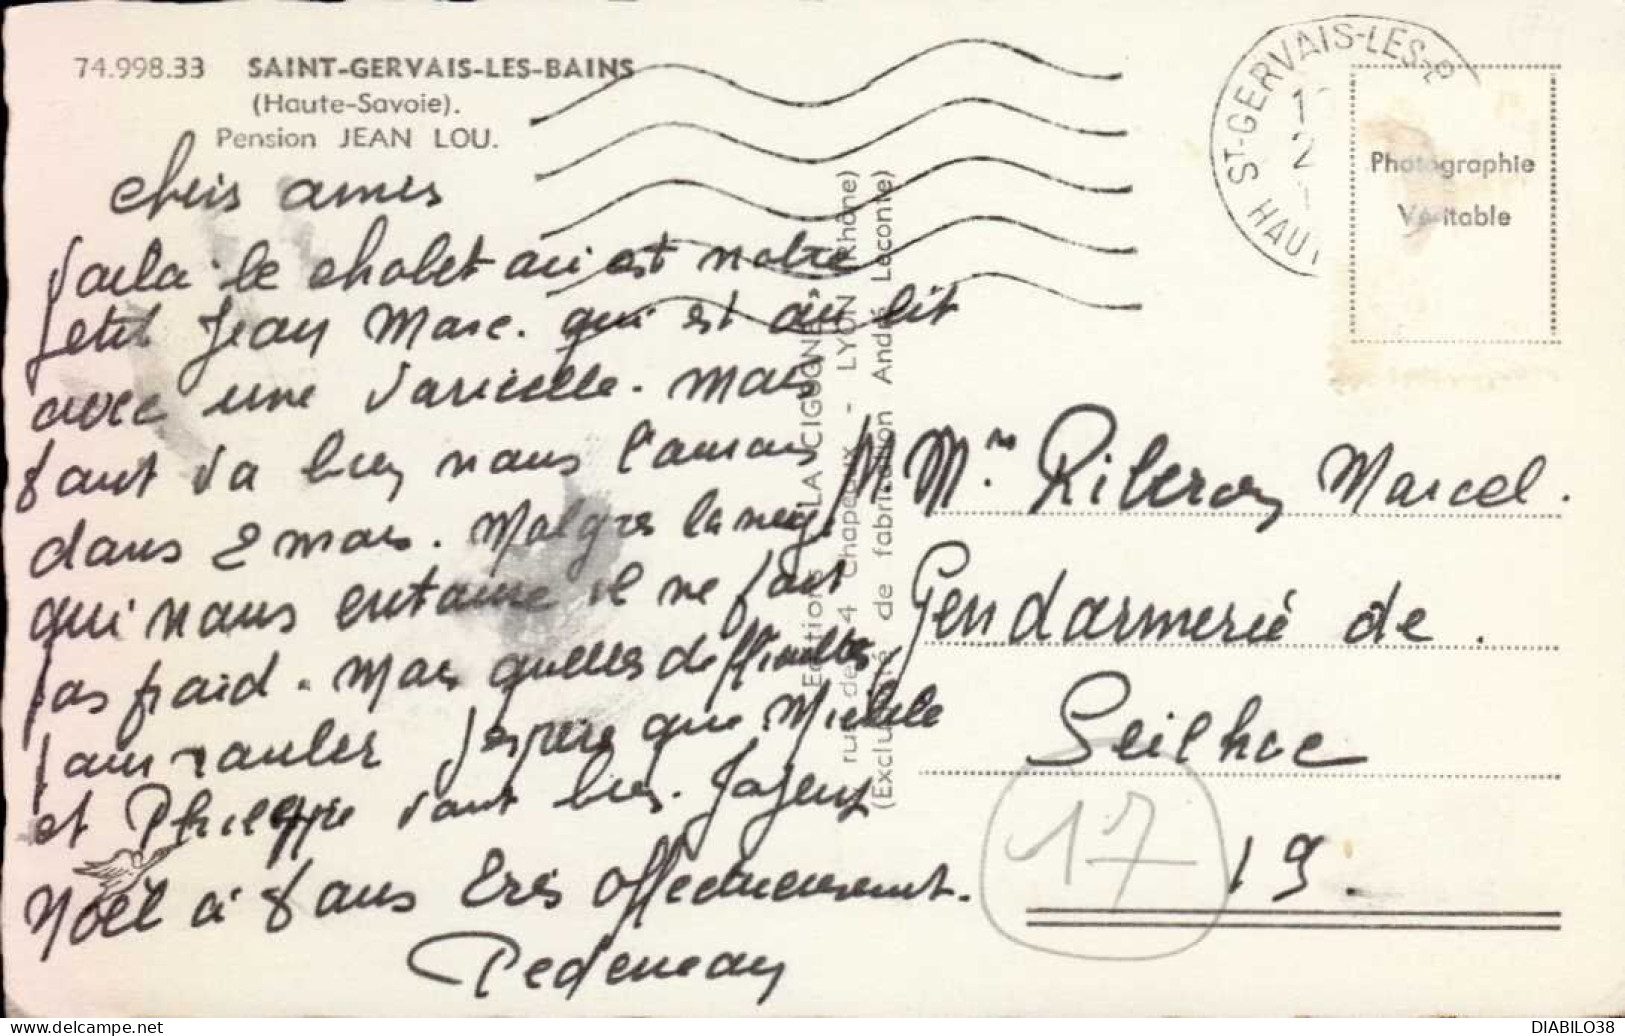 74.998.33 SAINT-GERVAIS-LES-BAINS
(Haute-Savoie).
Pension JEAN LOU.
chers amis
Voila le chalet ou est notre
petit Jean Marc. qui est au lit
avec une varicelle. mais
tout va bien nous l'aurons
dans 2 mois. Malgres la neige
qui nous entoure il ne fait
pas froid. Mais quelles difficultes
pour rouler J'espere que Michele
et Philippe vont bien. Joyeux
Noël à tous Très affectueusement.
Pedeneau
ST-GERVAIS-LES-B
HAUT
Photographie
Véritable
Editions LA CIGOGNE
rue des 4 Chapeaux - LYON (Rhône)
(Exclusivité de fabrication André Leconte)
M. Mme. Riberon Marcel.
Gendarmerie de.
Seilhac
17
19.
DIABILO38